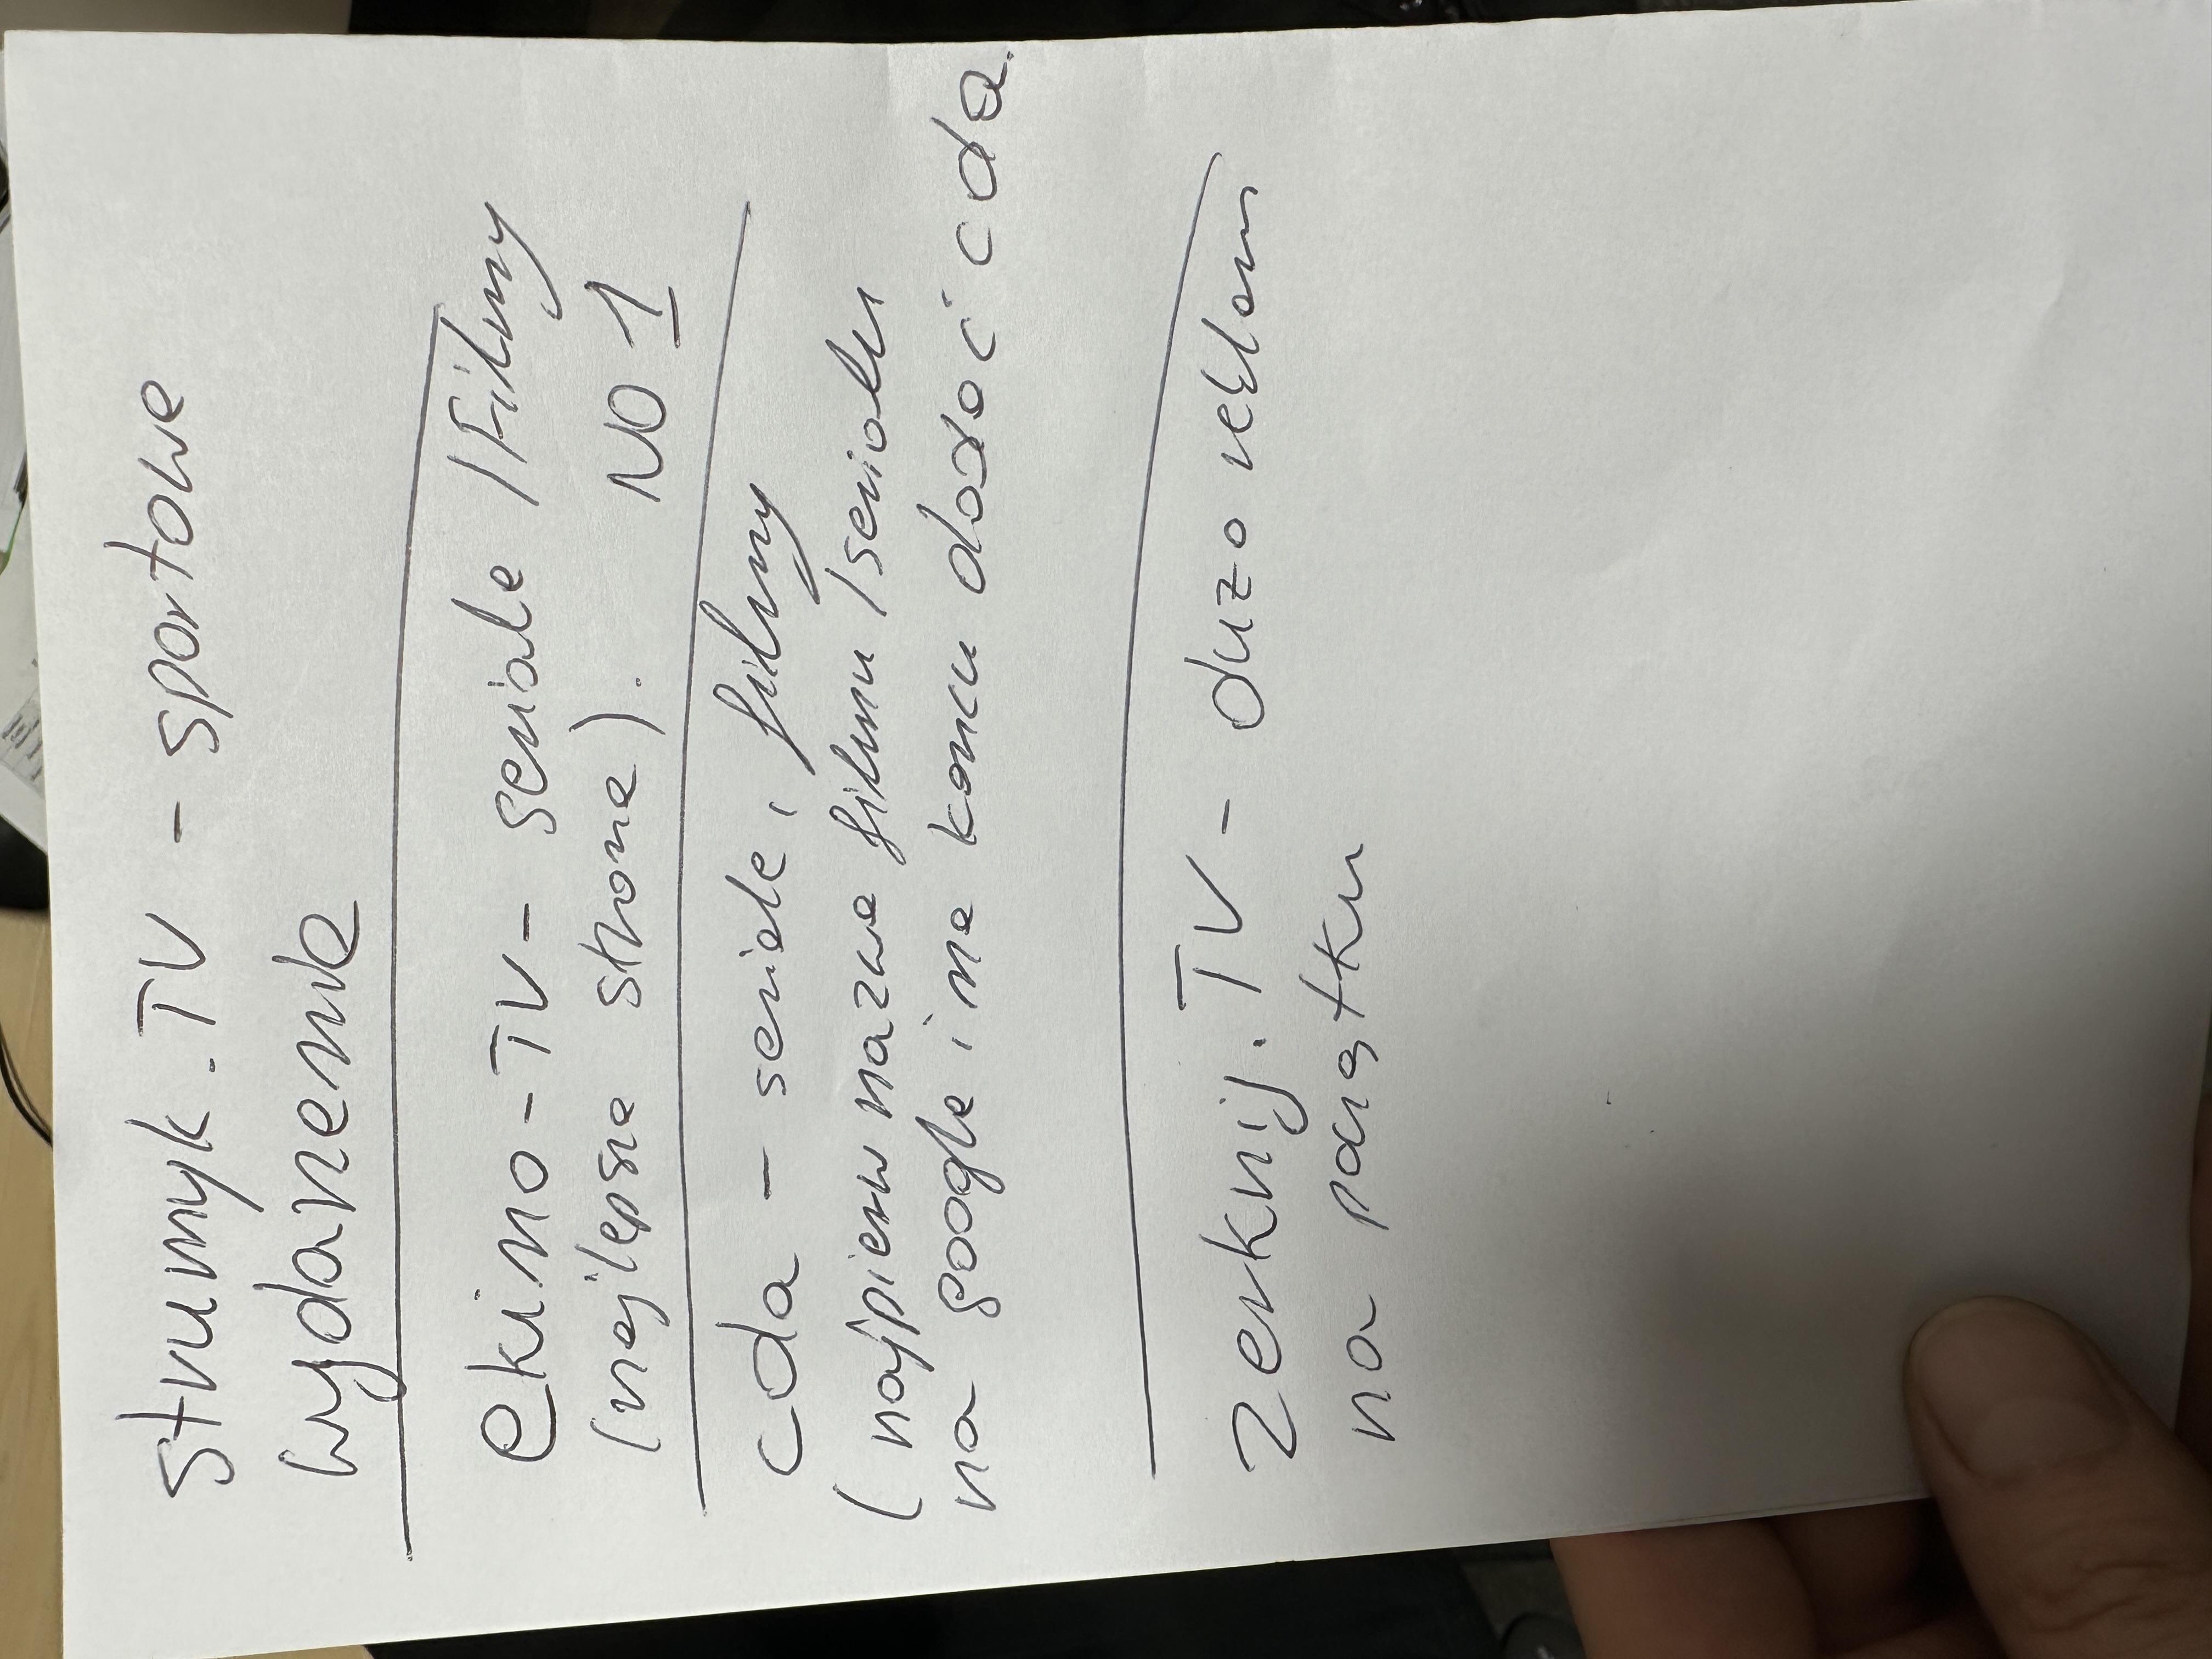 strumyk.TV - sportowe
wydarzenia
ekino-TV - seriale / Filmy
(najlepsza strona). NO 1
cda - seriale i filmy
(najpierw nazwa filmu / serialu
na google i na koncu dodać cda.
Zerknij.TV - duzo reklam
na początku